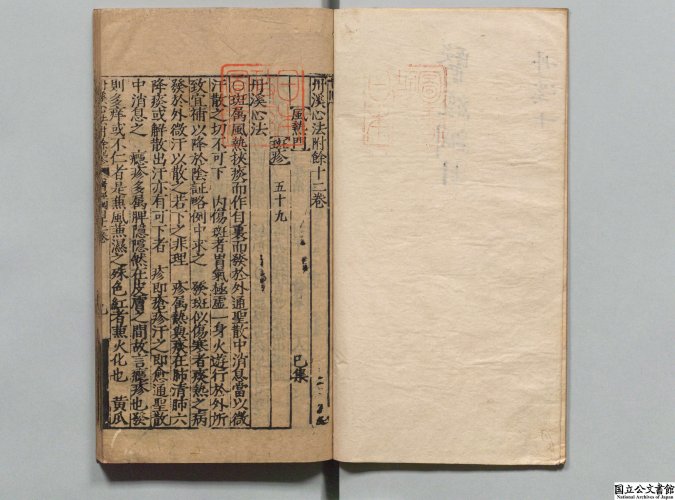 丹溪心法附餘十二卷
風熱門 巳集
斑疹 五十九
丹溪心法
曰斑属風熱挾痰而作自裏而發於外通聖散中消息當以微
汗散之切不可下 内傷斑者胃氣極虛一身火遊行於外所
致宜補以降於陰証略例中求之 發斑似傷寒者痰熱之病
發於外微汗以散之若下之非理 疹属熱與痰在肺清肺火
降痰或解散出汗亦有可下者 疹即瘡疹汗之即愈通聖散
中消息之 癮疹多属脾隱隱然在皮膚之間故言癮疹也發
則多痒或不仁者是兼風兼濕之殊色紅者兼火化也 黃瓜
国立公文書館
National Archives of Japan